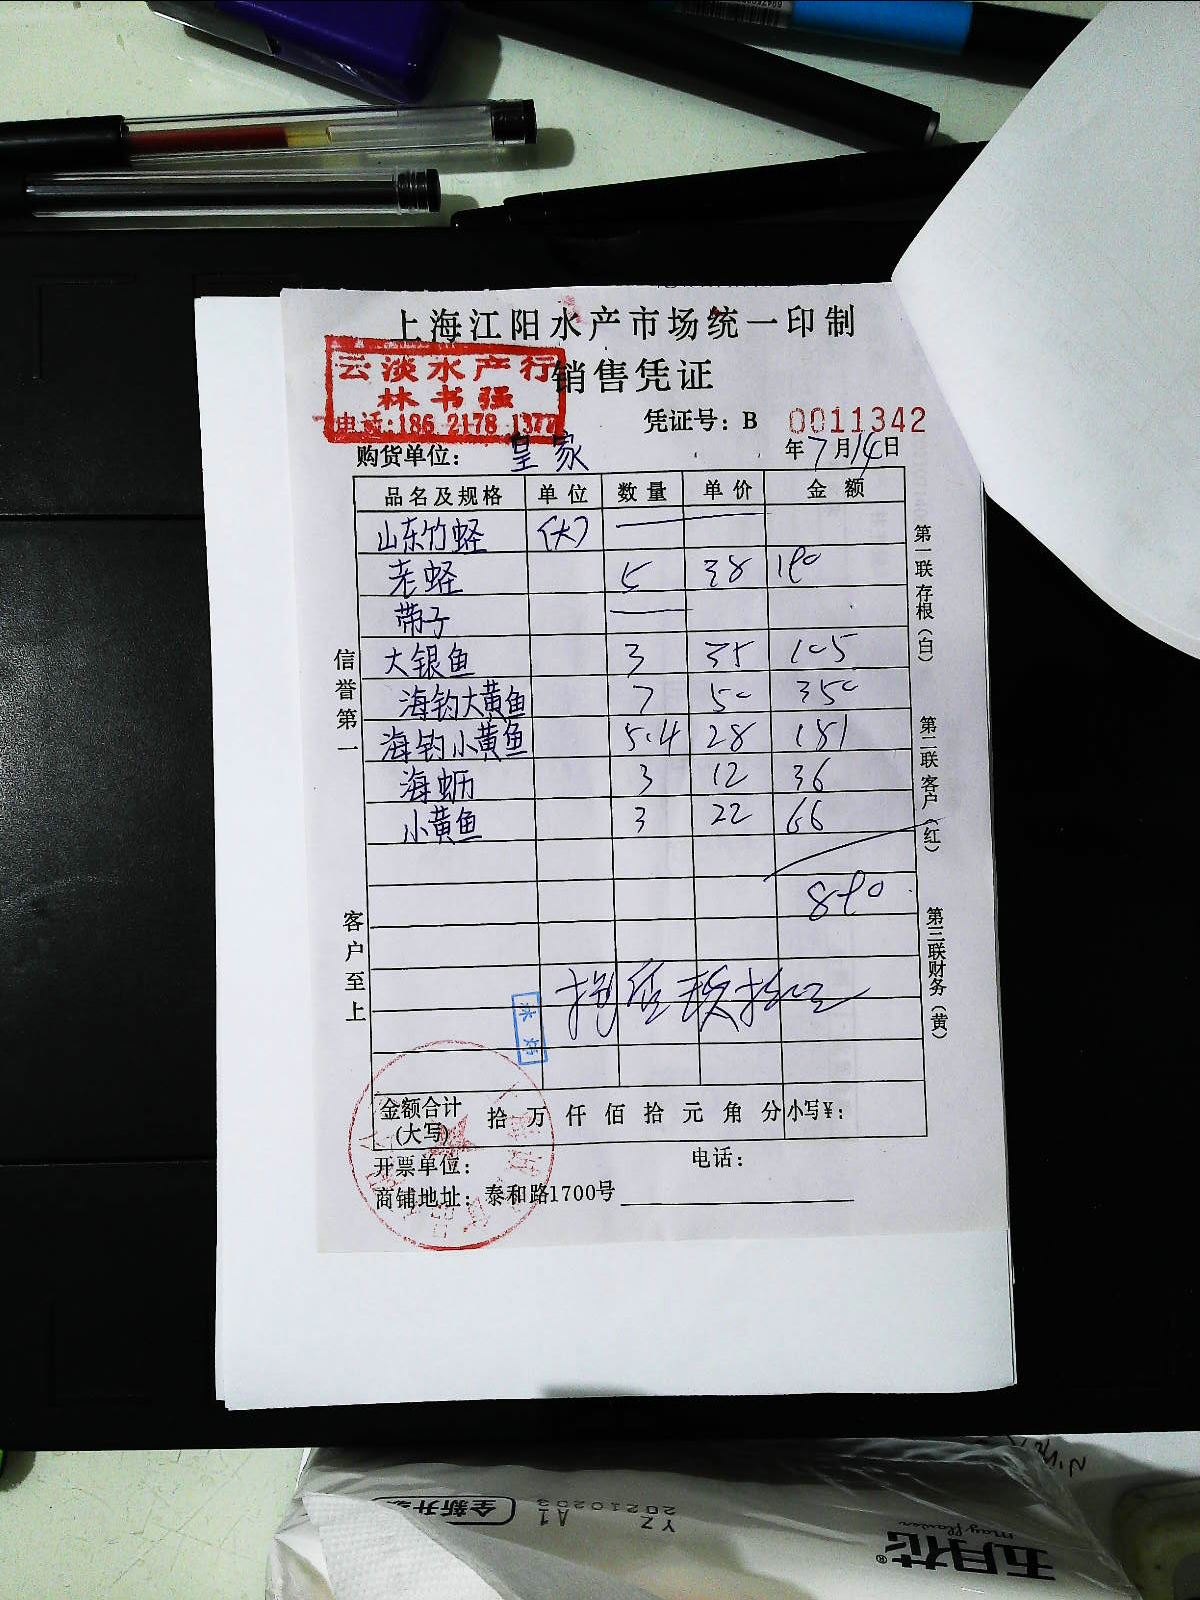 上海江阳水产市场统一印制
销售凭证
云淡水产行
林书强
电话:186 2178 1377
凭证号: B 0011342
购货单位: 皇家 年7月14日
品名及规格 单位 数量 单价 金额
山东竹蛏 (大)
老蛏 5 38 190
带子
大银鱼 3 35 105
海钓大黄鱼 7 50 350
海钓小黄鱼 5.4 28 151
海蛎 3 12 36
小黄鱼 3 22 66
890
捌佰玖拾元
金额合计(大写) 拾 万 仟 佰 拾 元 角 分 小写¥:
开票单位: 电话:
商铺地址: 泰和路1700号
信誉第一
客户至上
第一联存根(白)
第二联客户(红)
第三联财务(黄)
全新升
YZ A1
20210203
五月花®
mayflower